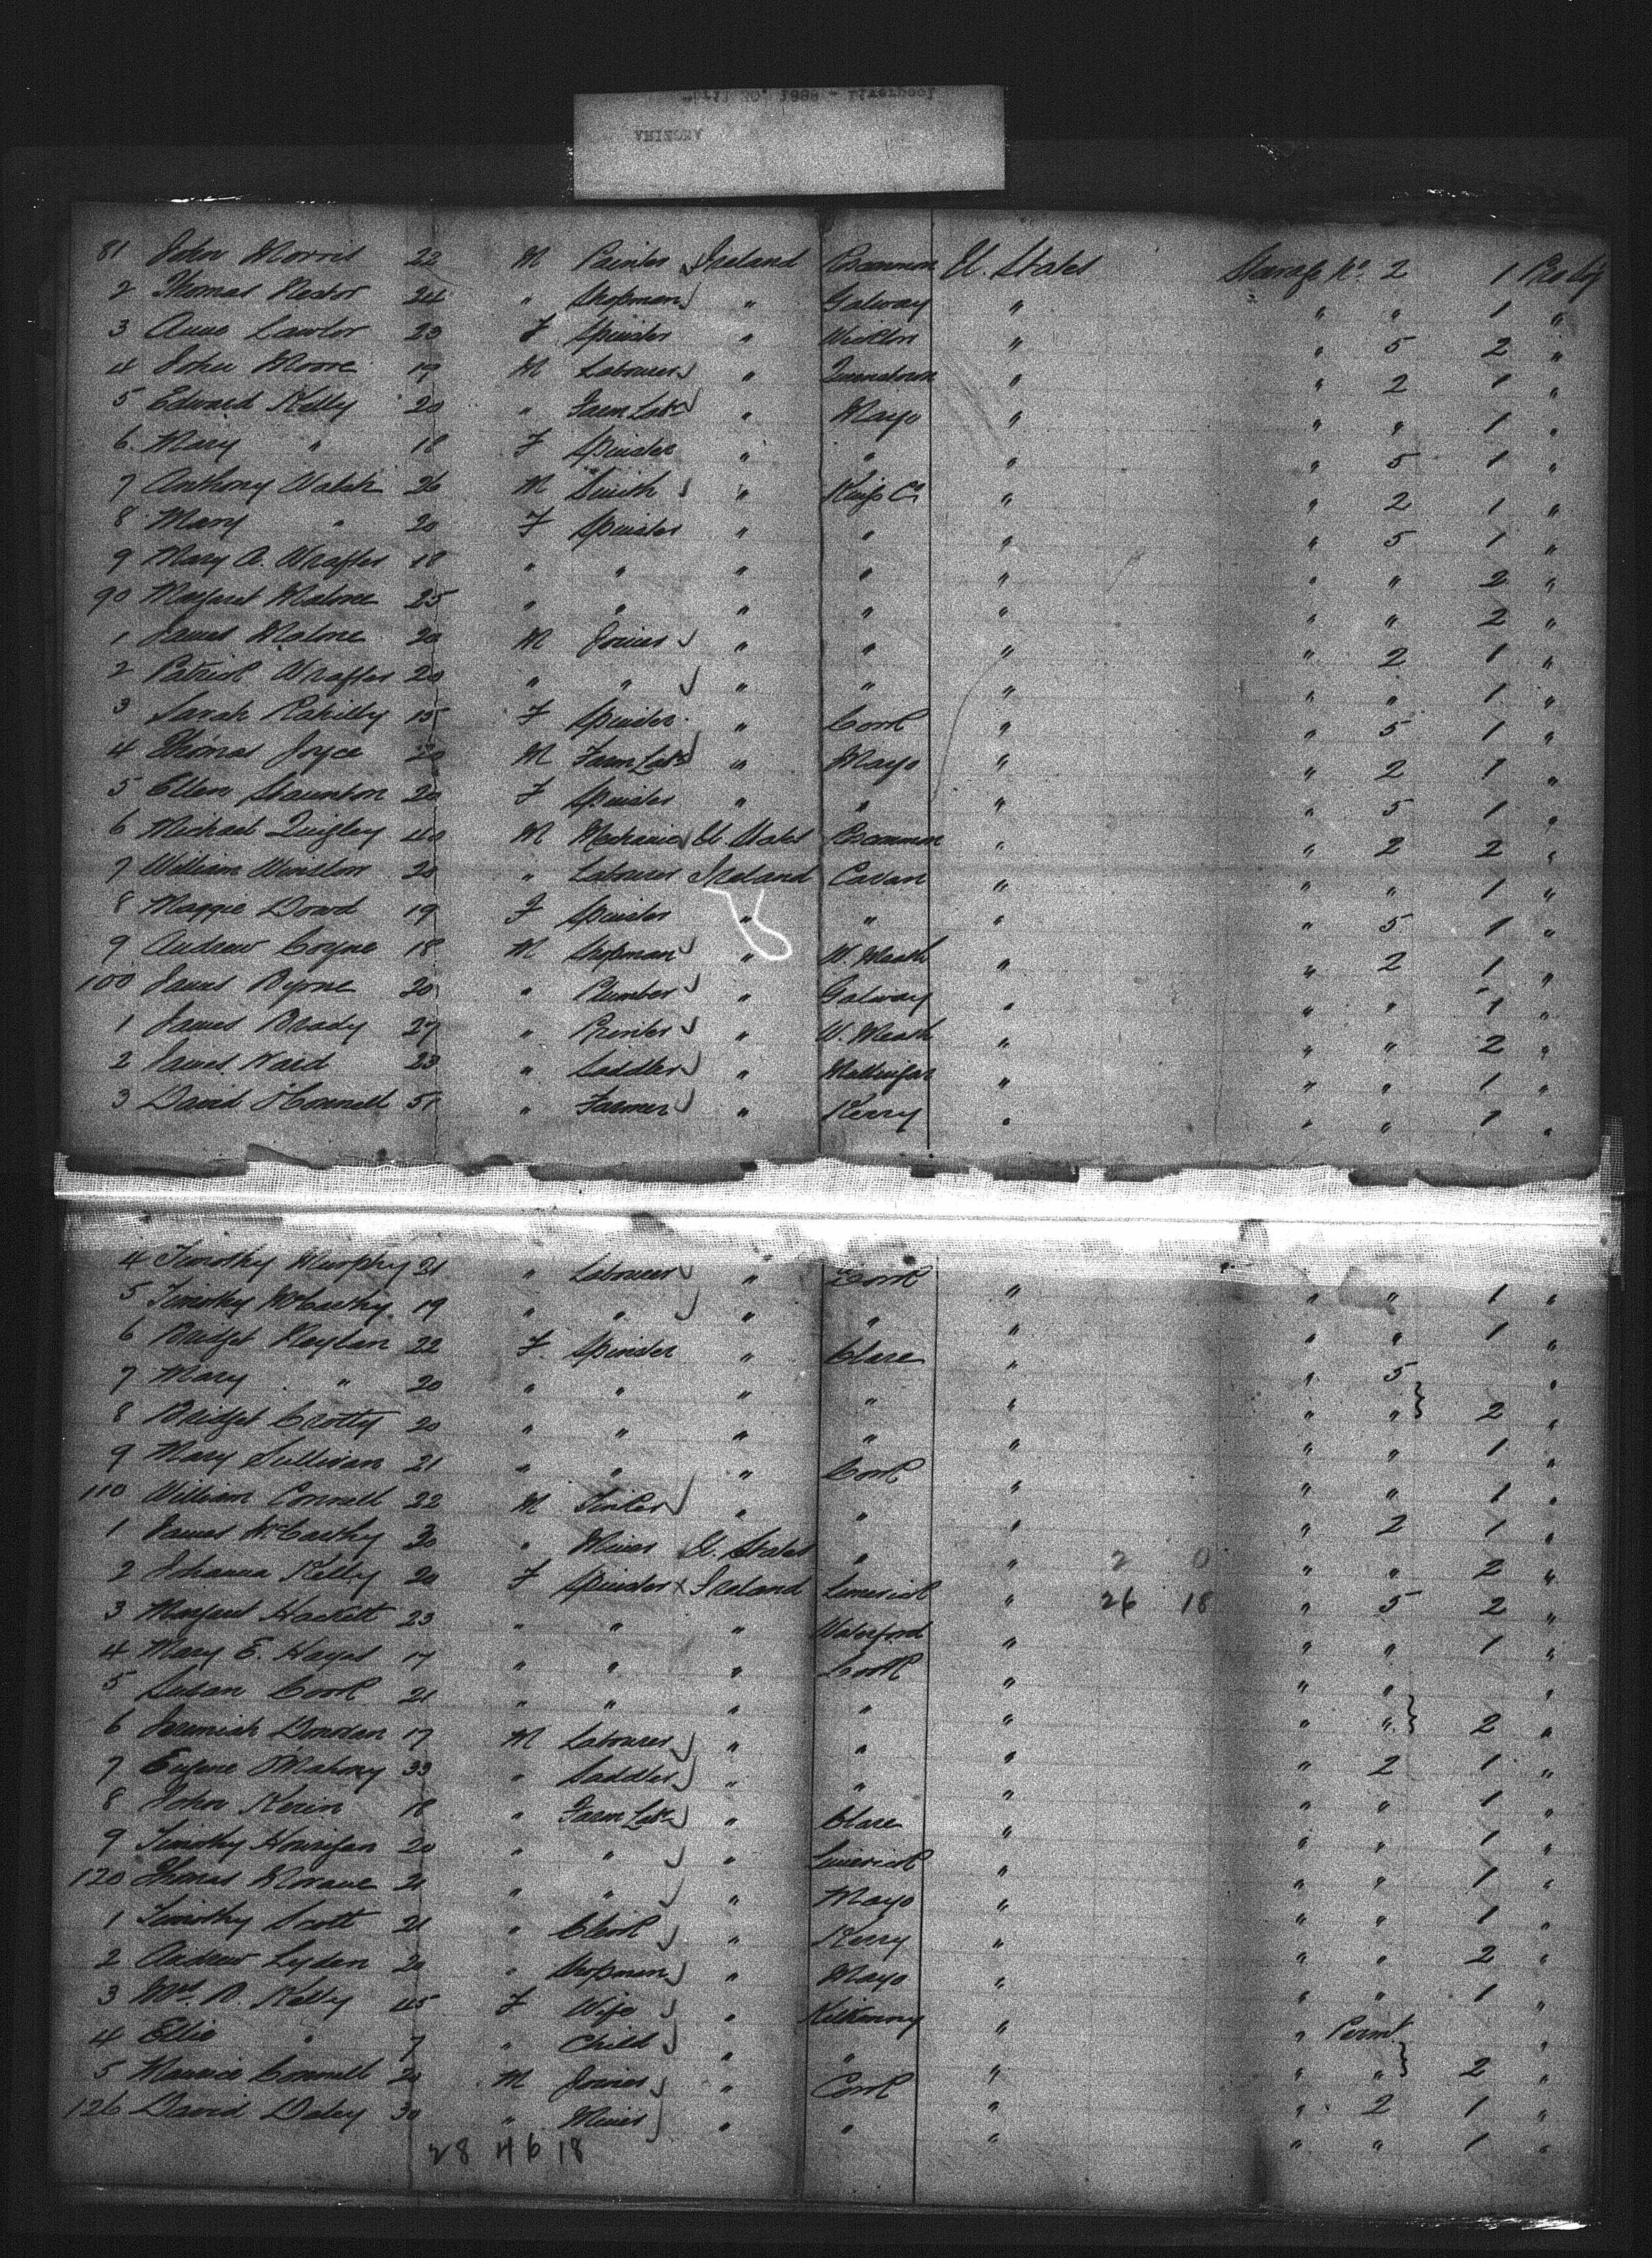 April 30, 1888 - Liverpool
81 John Morris 22 M Painter Ireland Roscommon U. States Steerage No. 2 1
2 Thomas Hector 24 " Shopman " Galway " " " 1 "
3 Anne Lawlor 23 F Spinster " Wicklow " " 5 2 "
4 John Moore 19 M Labourer " Queenstown " " 2 1 "
5 Edward Kelly 20 " Farm Labr " Mayo " " " 1 "
6 Mary " 18 F Spinster " " " " 5 1 "
7 Anthony Walsh 26 M Smith " Kings Co. " " 2 1 "
8 Mary " 20 F Spinster " " " " 5 1 "
9 Mary A. Wrafter 18 " " " " " " " 2 "
90 Margaret Malone 25 " " " " " " " 2 "
1 James Malone 20 M Joiner " " " " 2 1 "
2 Patrick Wrafter 20 " " " " " " " 1 "
3 Sarah Rahilly 15 F Spinster " Cork " " 5 1 "
4 Thomas Joyce 20 M Farm Labr " Mayo " " 2 1 "
5 Ellen Staunton 20 F Spinster " " " " 5 1 "
6 Michael Quigley 40 M Mechanic U. States Roscommon " " 2 2 "
7 William Winslow 20 " Labourer Ireland Cavan " " " 1 "
8 Maggie Dowd 19 F Spinster " " " " 5 1 "
9 Andrew Coyne 18 M Shopman " W. Meath " " 2 1 "
100 James Byrne 20 " Plumber " Galway " " " 1 "
1 James Brady 27 " Printer " W. Meath " " " 2 "
2 James Ward 23 " Saddler " Mullingar " " " 1 "
3 David O'Connell 51 " Farmer " Kerry " " " 1 "
4 Timothy Murphy 21 " Labourer " Cork " " " 1 "
5 Timothy McCarthy 19 " " " " " " " 1 "
6 Bridget Neylan 22 F Spinster " Clare " " 5 "
7 Mary " 20 " " " " " " " 2 "
8 Bridget Crotty 20 " " " " " " " 1 "
9 Mary Sullivan 21 " " " Cork " " " 1 "
110 William Connell 22 M " " " " 2 1 "
1 James McCarthy 30 " Miner U. States " " 2 0 " " 2 "
2 Johanna Kelly 20 F Spinster x Ireland Limerick " 26 18 " 5 2 "
3 Margaret Hackett 23 " " " Waterford " " " 1 "
4 Mary E. Hayes 17 " " " Cork " " " "
5 Susan Cook 21 " " " " " " " 2 "
6 Jeremiah Donovan 17 M Labourer " " " " 2 1 "
7 Eugene O'Mahony 33 " Saddler " " " " " 1 "
8 John Kerin 18 " Farm Labr " Clare " " " 1 "
9 Timothy Hourigan 20 " " " Limerick " " " 1 "
120 Thomas Morane 21 " " " Mayo " " " 1 "
1 Timothy Scott 21 " Clerk " Kerry " " " 2 "
2 Andrew Lyden 20 " Shopman " Mayo " " " 1 "
3 Mrs. B. Kelly 45 F Wife " Kilkenny " " Permt. "
4 Ellie " 7 " Child " " " " " 2 "
5 Maurice Connell 20 M Joiner " Cork " " 2 1 "
126 David Daley 30 " Miner " " " " " 1 "
28 46 18